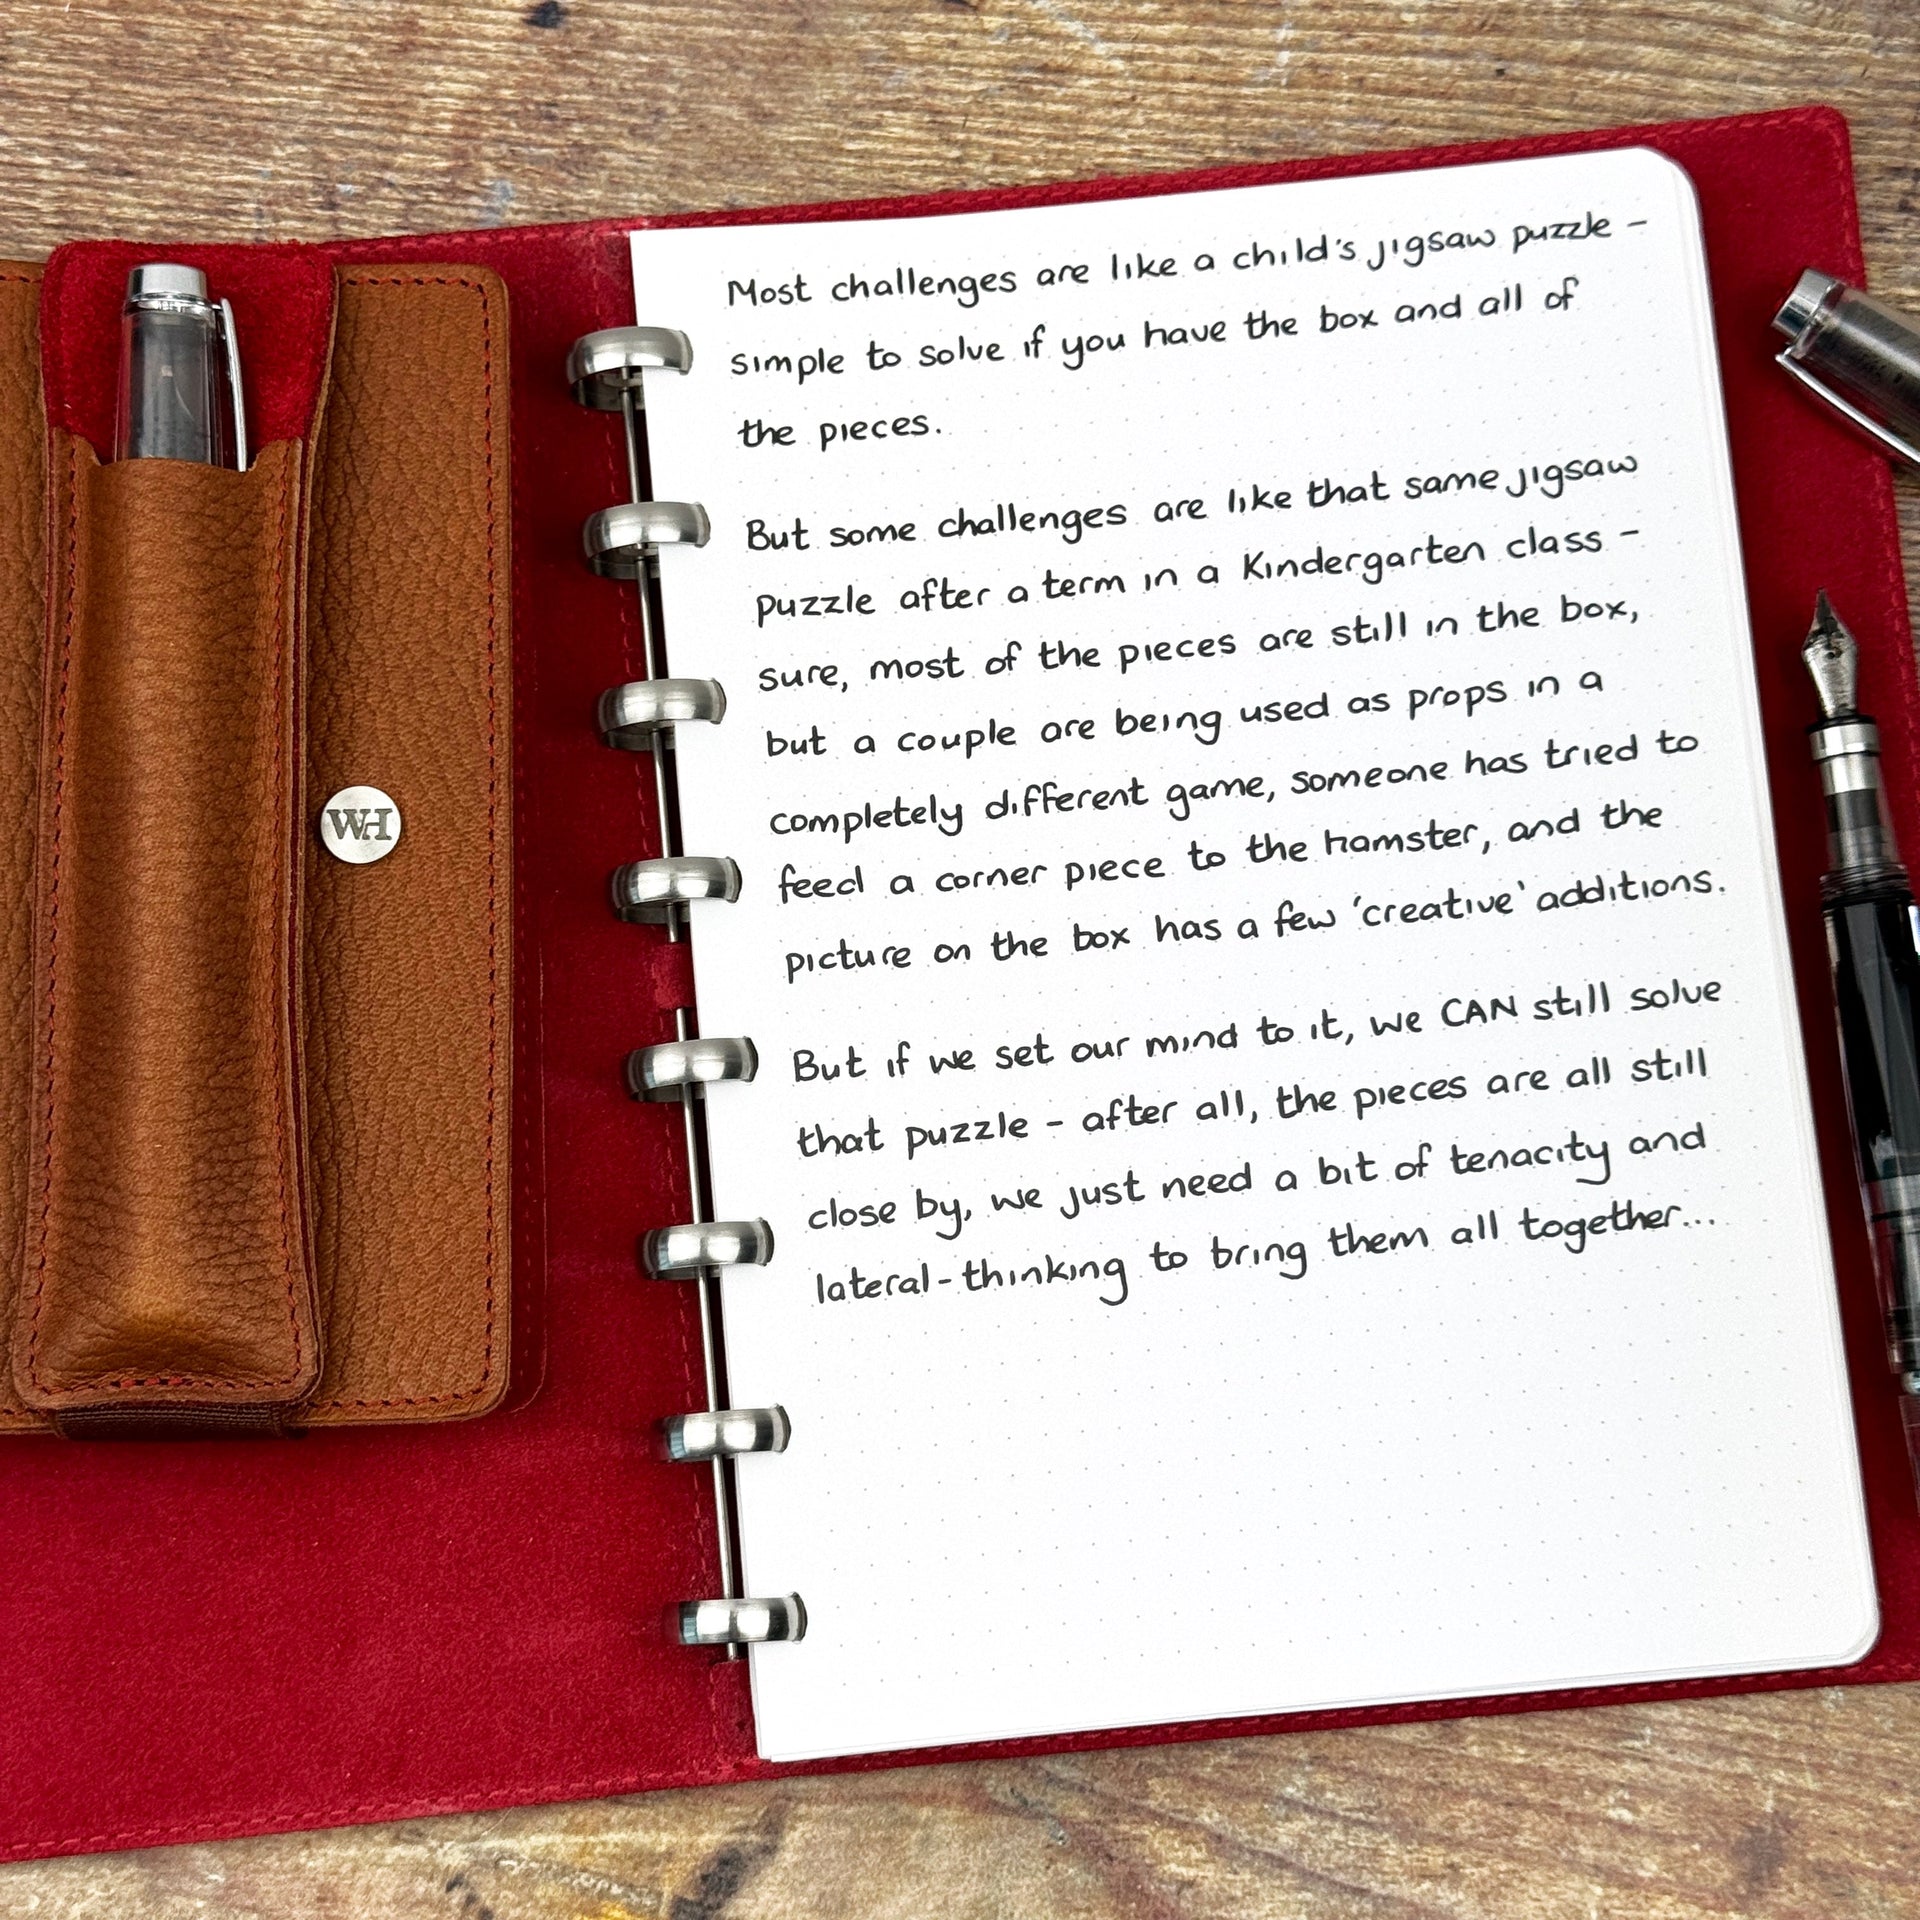 WH
Most challenges are like a child's jigsaw puzzle -
simple to solve if you have the box and all of
the pieces.
But some challenges are like that same jigsaw
puzzle after a term in a Kindergarten class -
sure, most of the pieces are still in the box,
but a couple are being used as props in a
completely different game, someone has tried to
feed a corner piece to the hamster, and the
picture on the box has a few 'creative' additions.
But if we set our mind to it, we CAN still solve
that puzzle - after all, the pieces are all still
close by, we just need a bit of tenacity and
lateral-thinking to bring them all together...